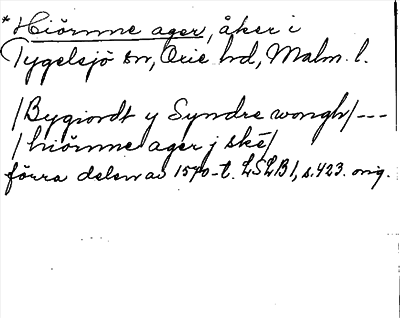 *Hiörnne ager, åker i
Tygelsjö sn, Oxie hd, Malm. l.
/Bygiordt y Syndre wongh/---
/hiörnne ager j ské/
förra delen av 1570-t. LSLB1, s.423. orig.